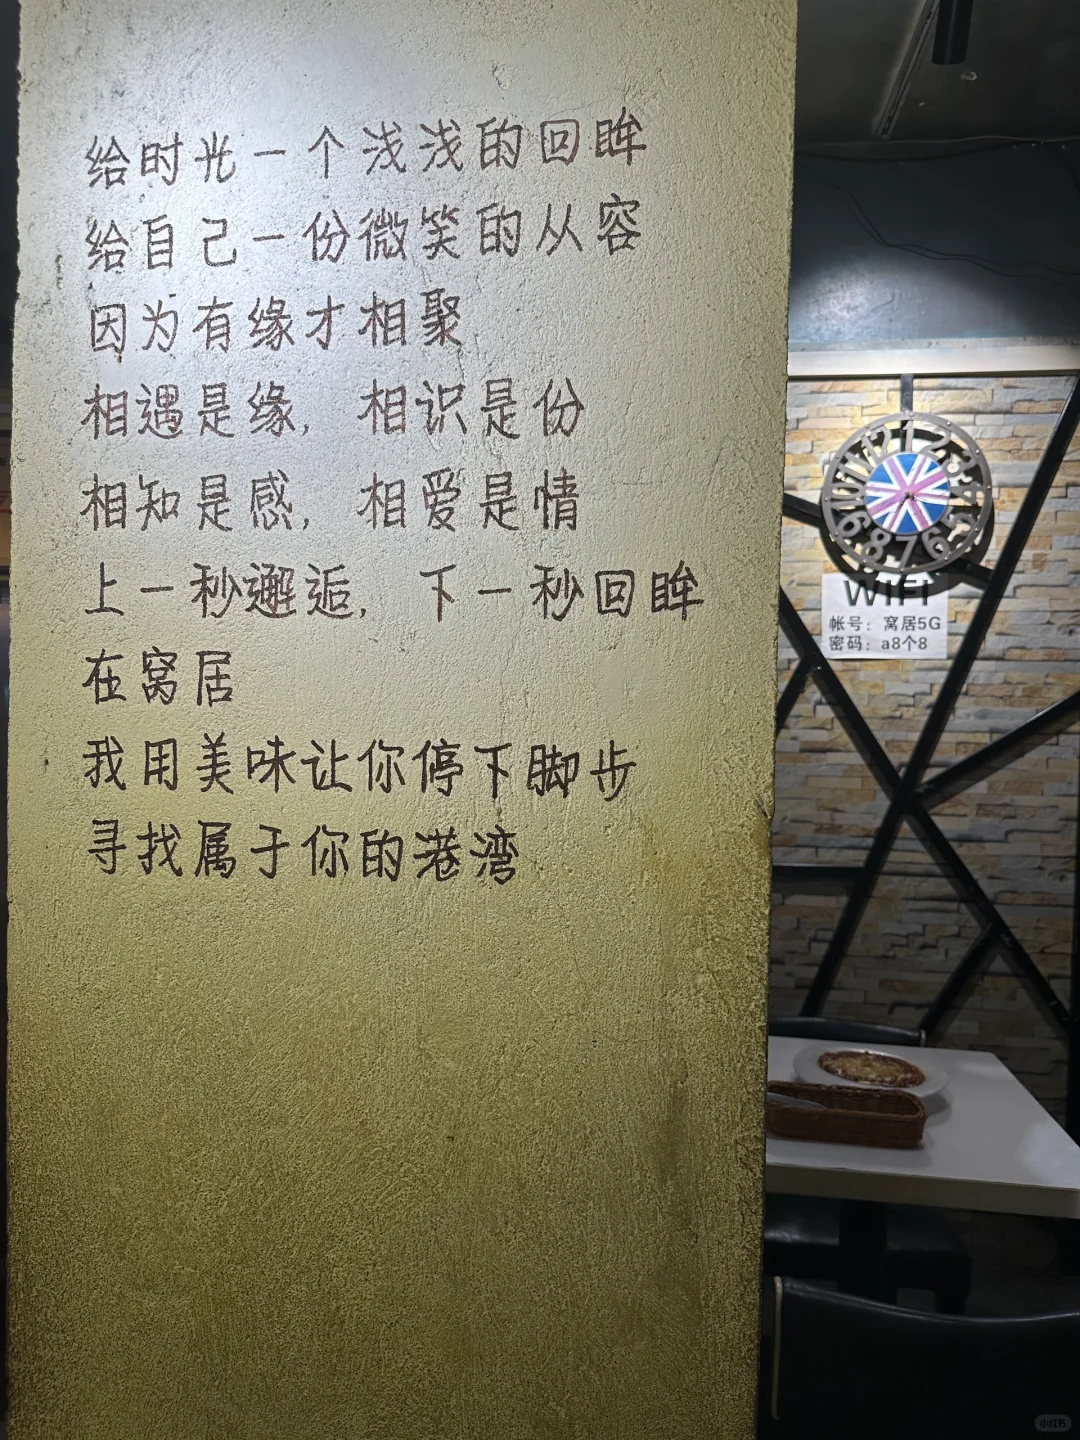 给时光一个浅浅的回眸
给自己一份微笑的从容
因为有缘才相聚
相遇是缘，相识是份
相知是感，相爱是情
上一秒邂逅，下一秒回眸
在窝居
我用美味让你停下脚步
寻找属于你的港湾
12 1 2 3 4 5 6 7 8 9 10 11
WIFI
帐号：窝居5G
密码：a8个8
小红书